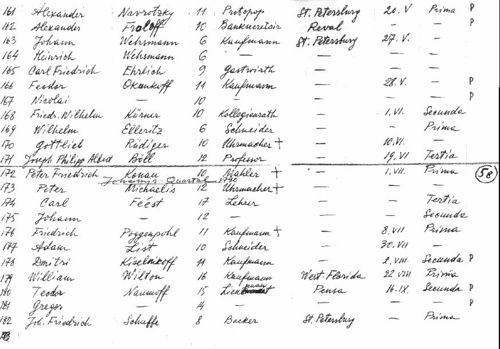 161 Alexander Navrotzky 11 Protopop St. Petersburg 20. V Prima P
162 Alexander Froloff 10 Bankmeretsir Reval — —
163 Johann Wehrmann 6 Kaufmann St. Petersburg 27. V. — P
164 Heinrich Wehrmann 6 — — — —
165 Carl Friedrich Ehrlich 9 Gastwirth — — —
166 Feodor Okunkoff 11 Kaufmann — 28. V. — P
167 Nicolai — 10 — — — — P
168 Friedr. Wilhelm Körner 10 Kollegienrath — 1. VI. Secunda
169 Wilhelm Elleritz 6 Schneider — — Prima
170 Gottlieb Rüdiger 10 Uhrmacher + — 10. VI. —
171 Joseph Philipp Albert Böll 12 Professor — 19. VII Tertia
172 Peter Friedrich Konau 10 Mahler + — 1. VII. Prima 58
Johannis-Quartal
173 Peter Michaelis 12 Uhrmacher + — — —
174 Carl Feest 17 Lehrer — — Tertia
175 Johann — 12 — — — Secunda
176 Friedrich Poggenpohl 11 Kaufmann + — 8. VII Prima
177 Adam List 10 Schneider — 30. VII —
178 Dmitri Kiselnikoff 11 Kaufmann — 2. VIII Secunda P
179 William Wilton 16 Kaufmann West Florida 22 VIII Prima
180 Teodor Naumoff 15 Pensa 16. IX. Secunda P
181 Gregor — 14 — — — — P
182 Joh. Friedrich Schuffe 8 Backer St. Petersburg — Prima
183